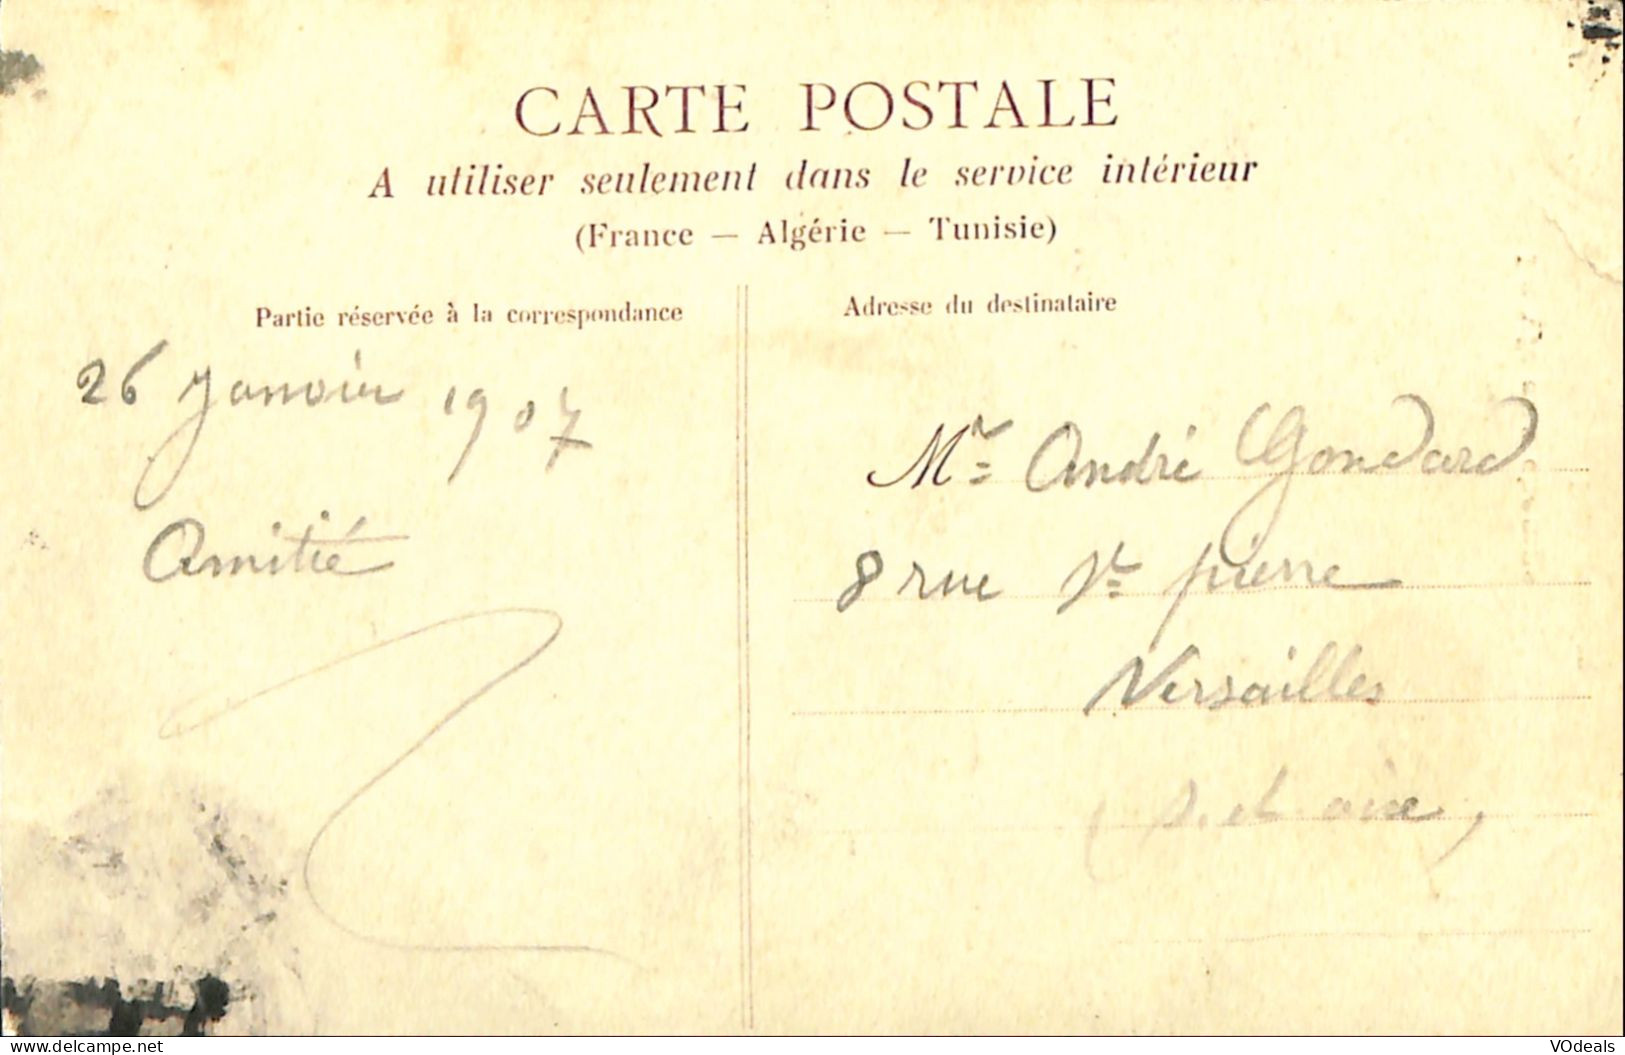 CARTE POSTALE
A utiliser seulement dans le service intérieur
(France — Algérie — Tunisie)
Partie réservée à la correspondance
26 Janvier 1907
Amitié
Adresse du destinataire
Mr André Gondard
8 rue St pierre
Versailles
(S. et oise)
www.delcampe.net
VOdeals